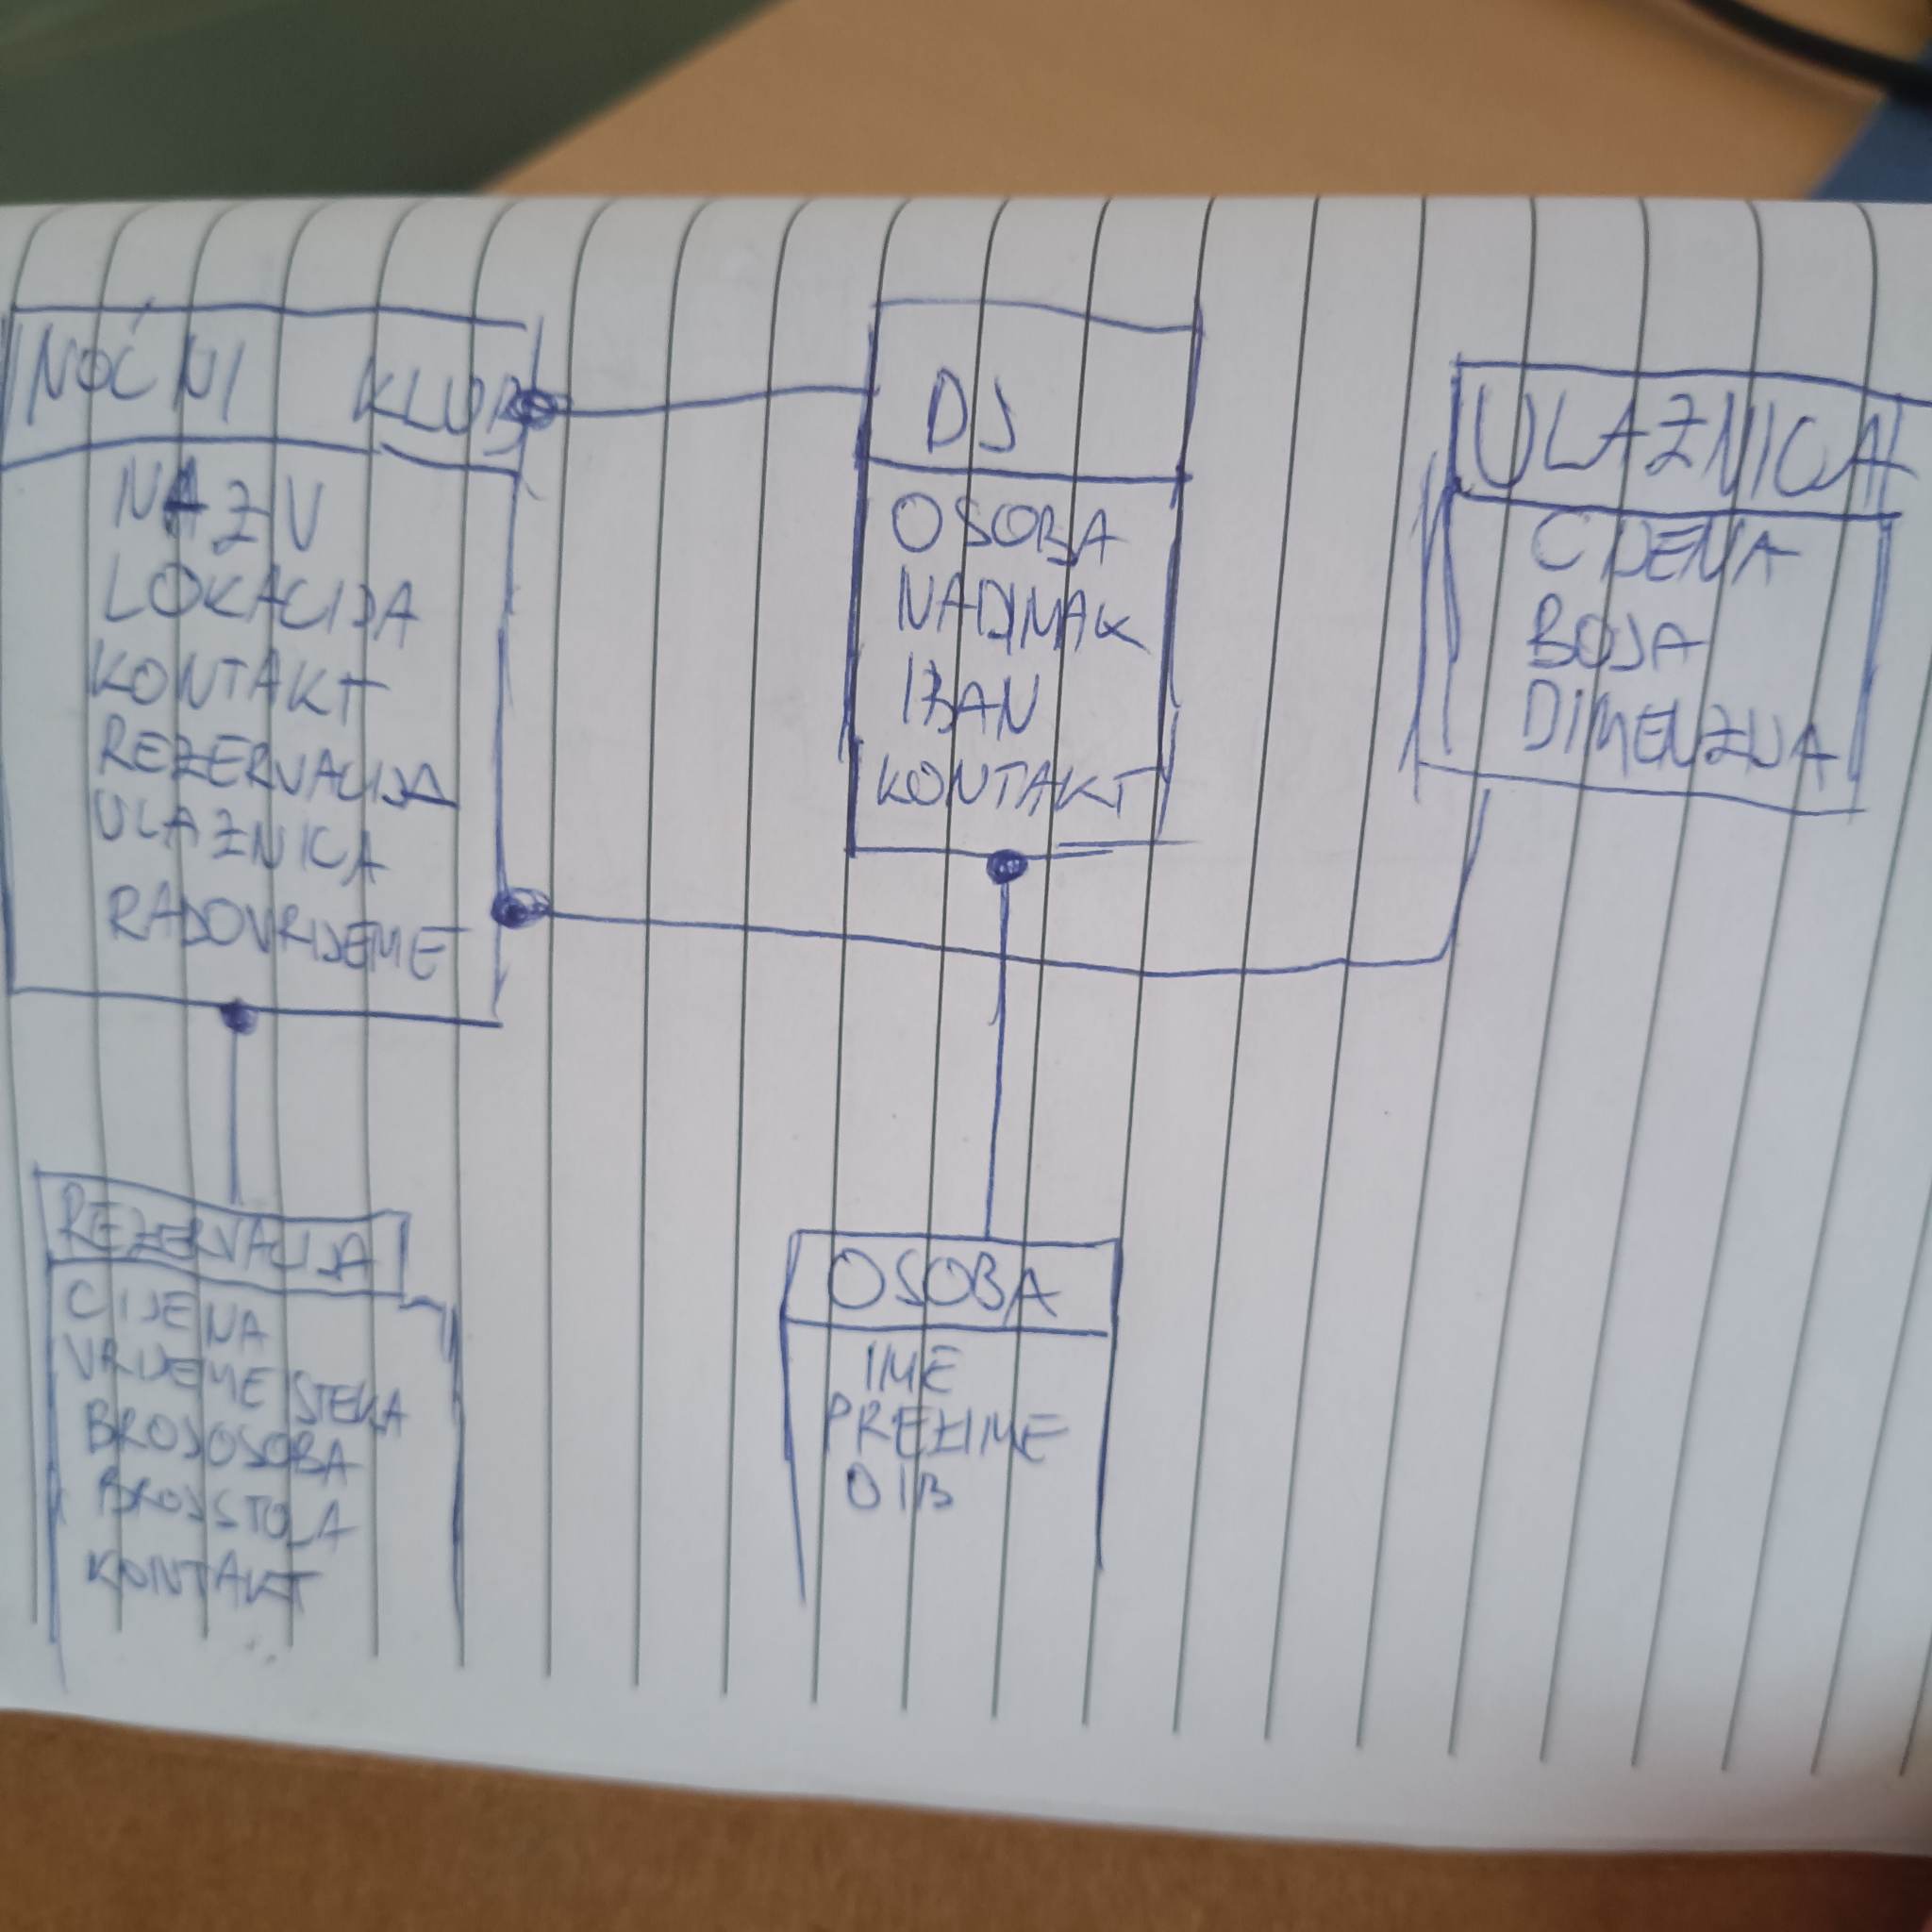 NOĆNI KLUB
NAZIV
LOKACIJA
KONTAKT
REZERVACIJA
ULAZNICA
RADOVRIJEME
DJ
OSOBA
NADIMAK
IBAN
KONTAKT
ULAZNICA
CIJENA
BOJA
DIMENZIJA
REZERVACIJA
CIJENA
VRIJEME ISTEKA
BROJOSOBA
BROJSTOLA
KONTAKT
OSOBA
IME
PREZIME
OIB